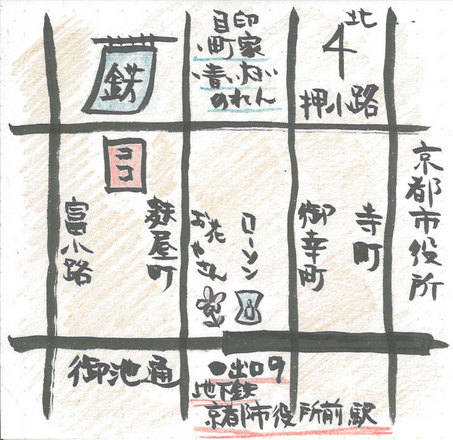 北
4
目印
町家
青い
のれん
鉄
押小路
ココ
京都市役所
寺町
御幸町
ローソン
お花やさん
麩屋町
富小路
御池通
出口9
地下鉄
京都市役所前駅